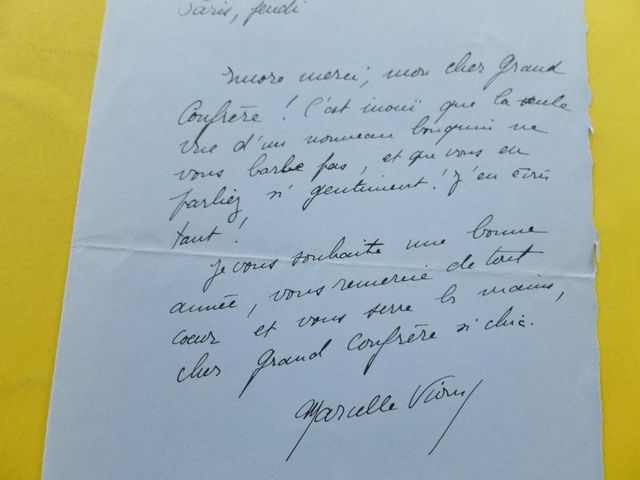 Paris, jeudi
Encore merci, mon cher Grand
Confrère ! C'est inouï que la seule
vue d'un nouveau bouquin ne
vous barbe pas, et que vous en
parliez si gentiment ! J'en écris
tant !
Je vous souhaite une bonne
année, vous remercie de tout
coeur et vous serre les mains,
cher Grand Confrère si chic.
Marcelle Vioux